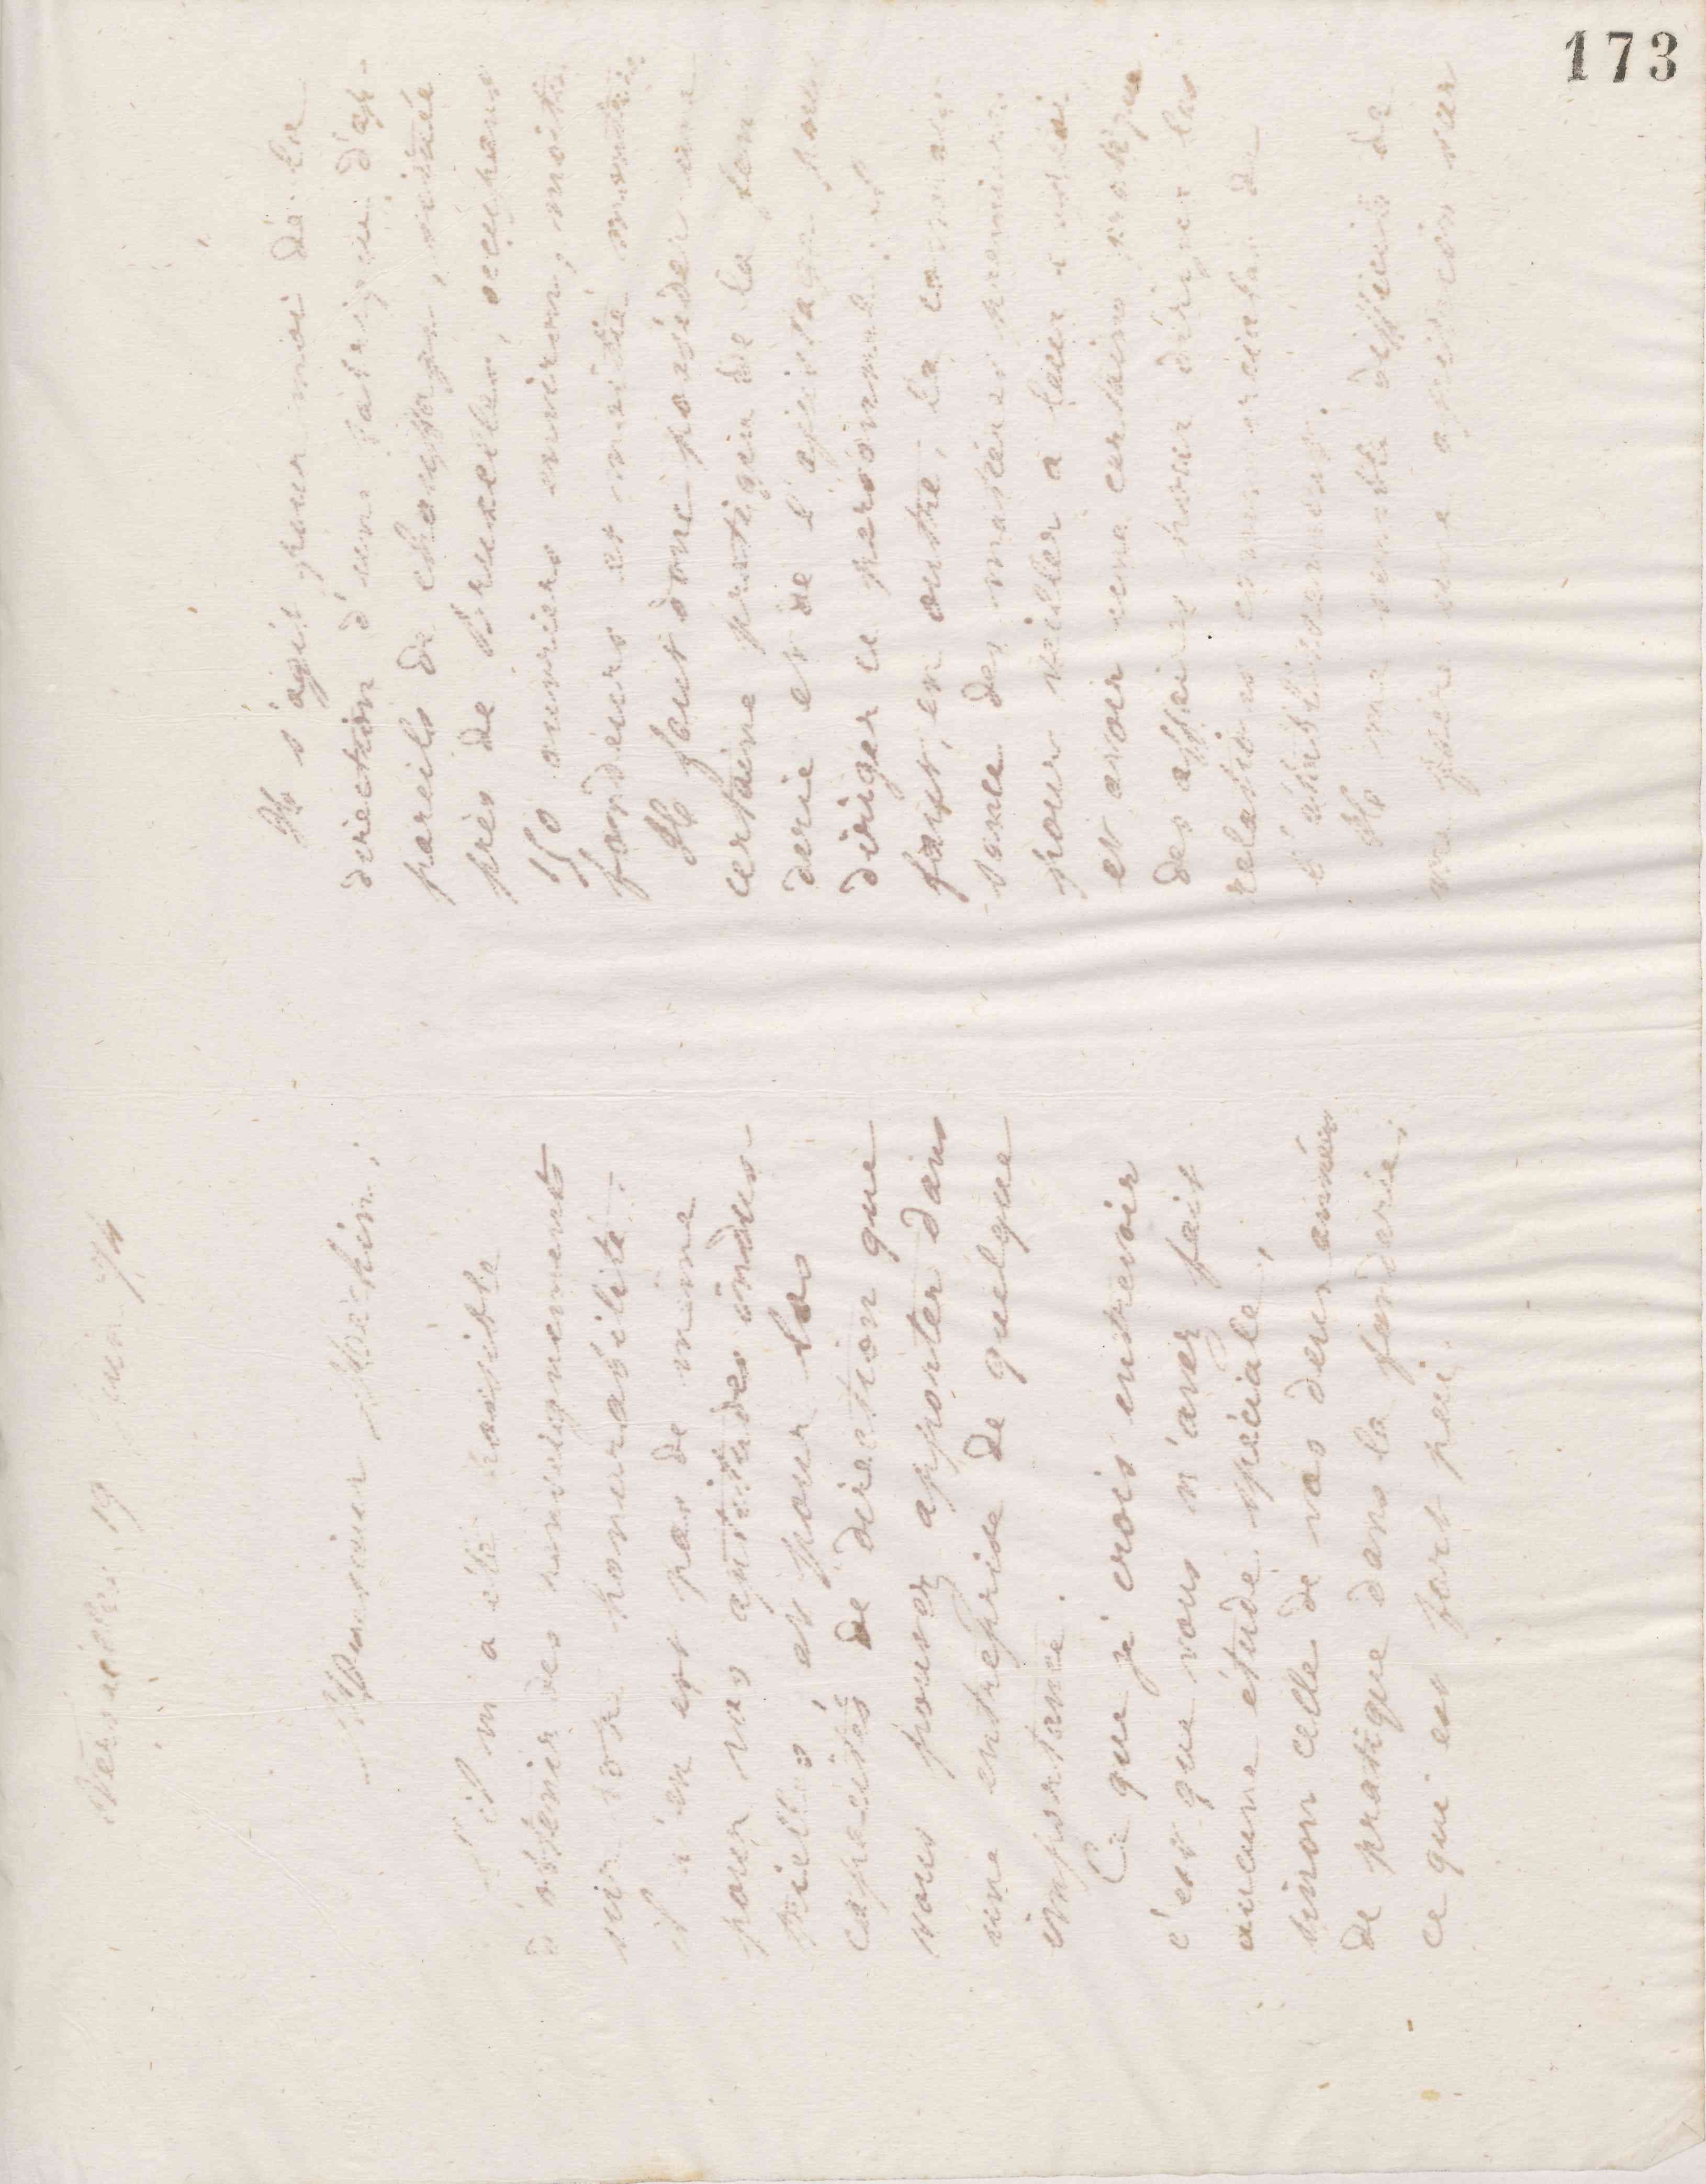 173
Versailles 19 juin 74
Monsieur
S'il m'a été possible
d'obtenir des renseignements
sur votre honorabilité
il n'en est pas de même
pour vos aptitudes indus-
trielles, et pour les
capacités de direction que
vous pouvez apporter dans
une entreprise de quelque
importance.
Ce que je crois entrevoir
c'est que vous n'avez fait
aucune étude spéciale,
sinon celle de vos deux années
de pratique dans la fonderie;
ce qui est fort peu.
Il s'agit pour moi de la
direction d'une fabrique d'ap-
pareils de chauffage, située
près de Bruxelles, occupant
150 ouvriers environ, moitié
fondeurs et moitié monteurs
Il faut donc posséder une
certaine pratique de la fon
derie et de l'ajustage pour
diriger ce personnel; il
faut, en outre, la connais
sance des matières premières
pour veiller à leur emploi
et avoir une certaine pratique
des affaires pour diriger les
relations commerciales de
l'établissement.
Il me semble difficile de
me faire une opinion sur